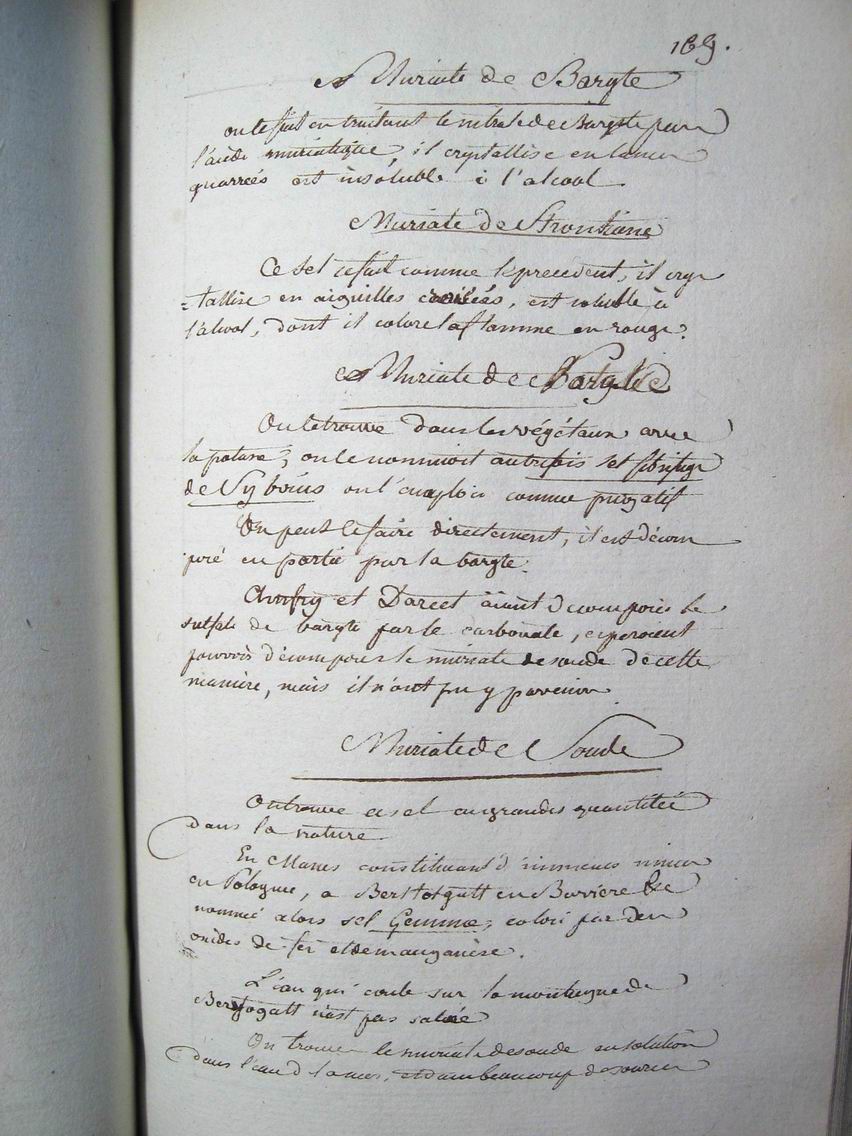 169.
Muriate de Baryte
on le fait en traitant le nitrate de Baryte par
l'acide muriatique, il crystallise en lames
quarrées est insoluble à l'alcool
Muriate de Strontiane
Ce sel se fait comme le precedent, il crys
=tallise en aiguilles, est soluble à
l'alcool, dont il colore la flamme en rouge.
Muriate de
On le trouve dans les végétaux avec
la potasse, on le nommoit autrefois sel fébrifuge
de Sylvius on l'emploie comme purgatif
On peut le faire directement, il est décom
posé en partie par la baryte.
Anfry et Darcet aiant décomposé le
sulfate de baryte par le carbonate, esperoient
pouvoir décomposer le muriate de soude de cette
maniere, mais ils n'ont pu y parvenir
Muriate de Soude
On trouve ce sel en grandes quantités
dans la nature
En Masses constituant d'immenses mines
en Pologne, a en Baviere &c
nommé alors sel Gemme, coloré par des
oxides de fer et de manganèse.
L'eau qui coule sur la montagne de
n'est pas salée
On trouve le muriate de soude en solution
dans l'eau d la mer, et dans beaucoup de sources